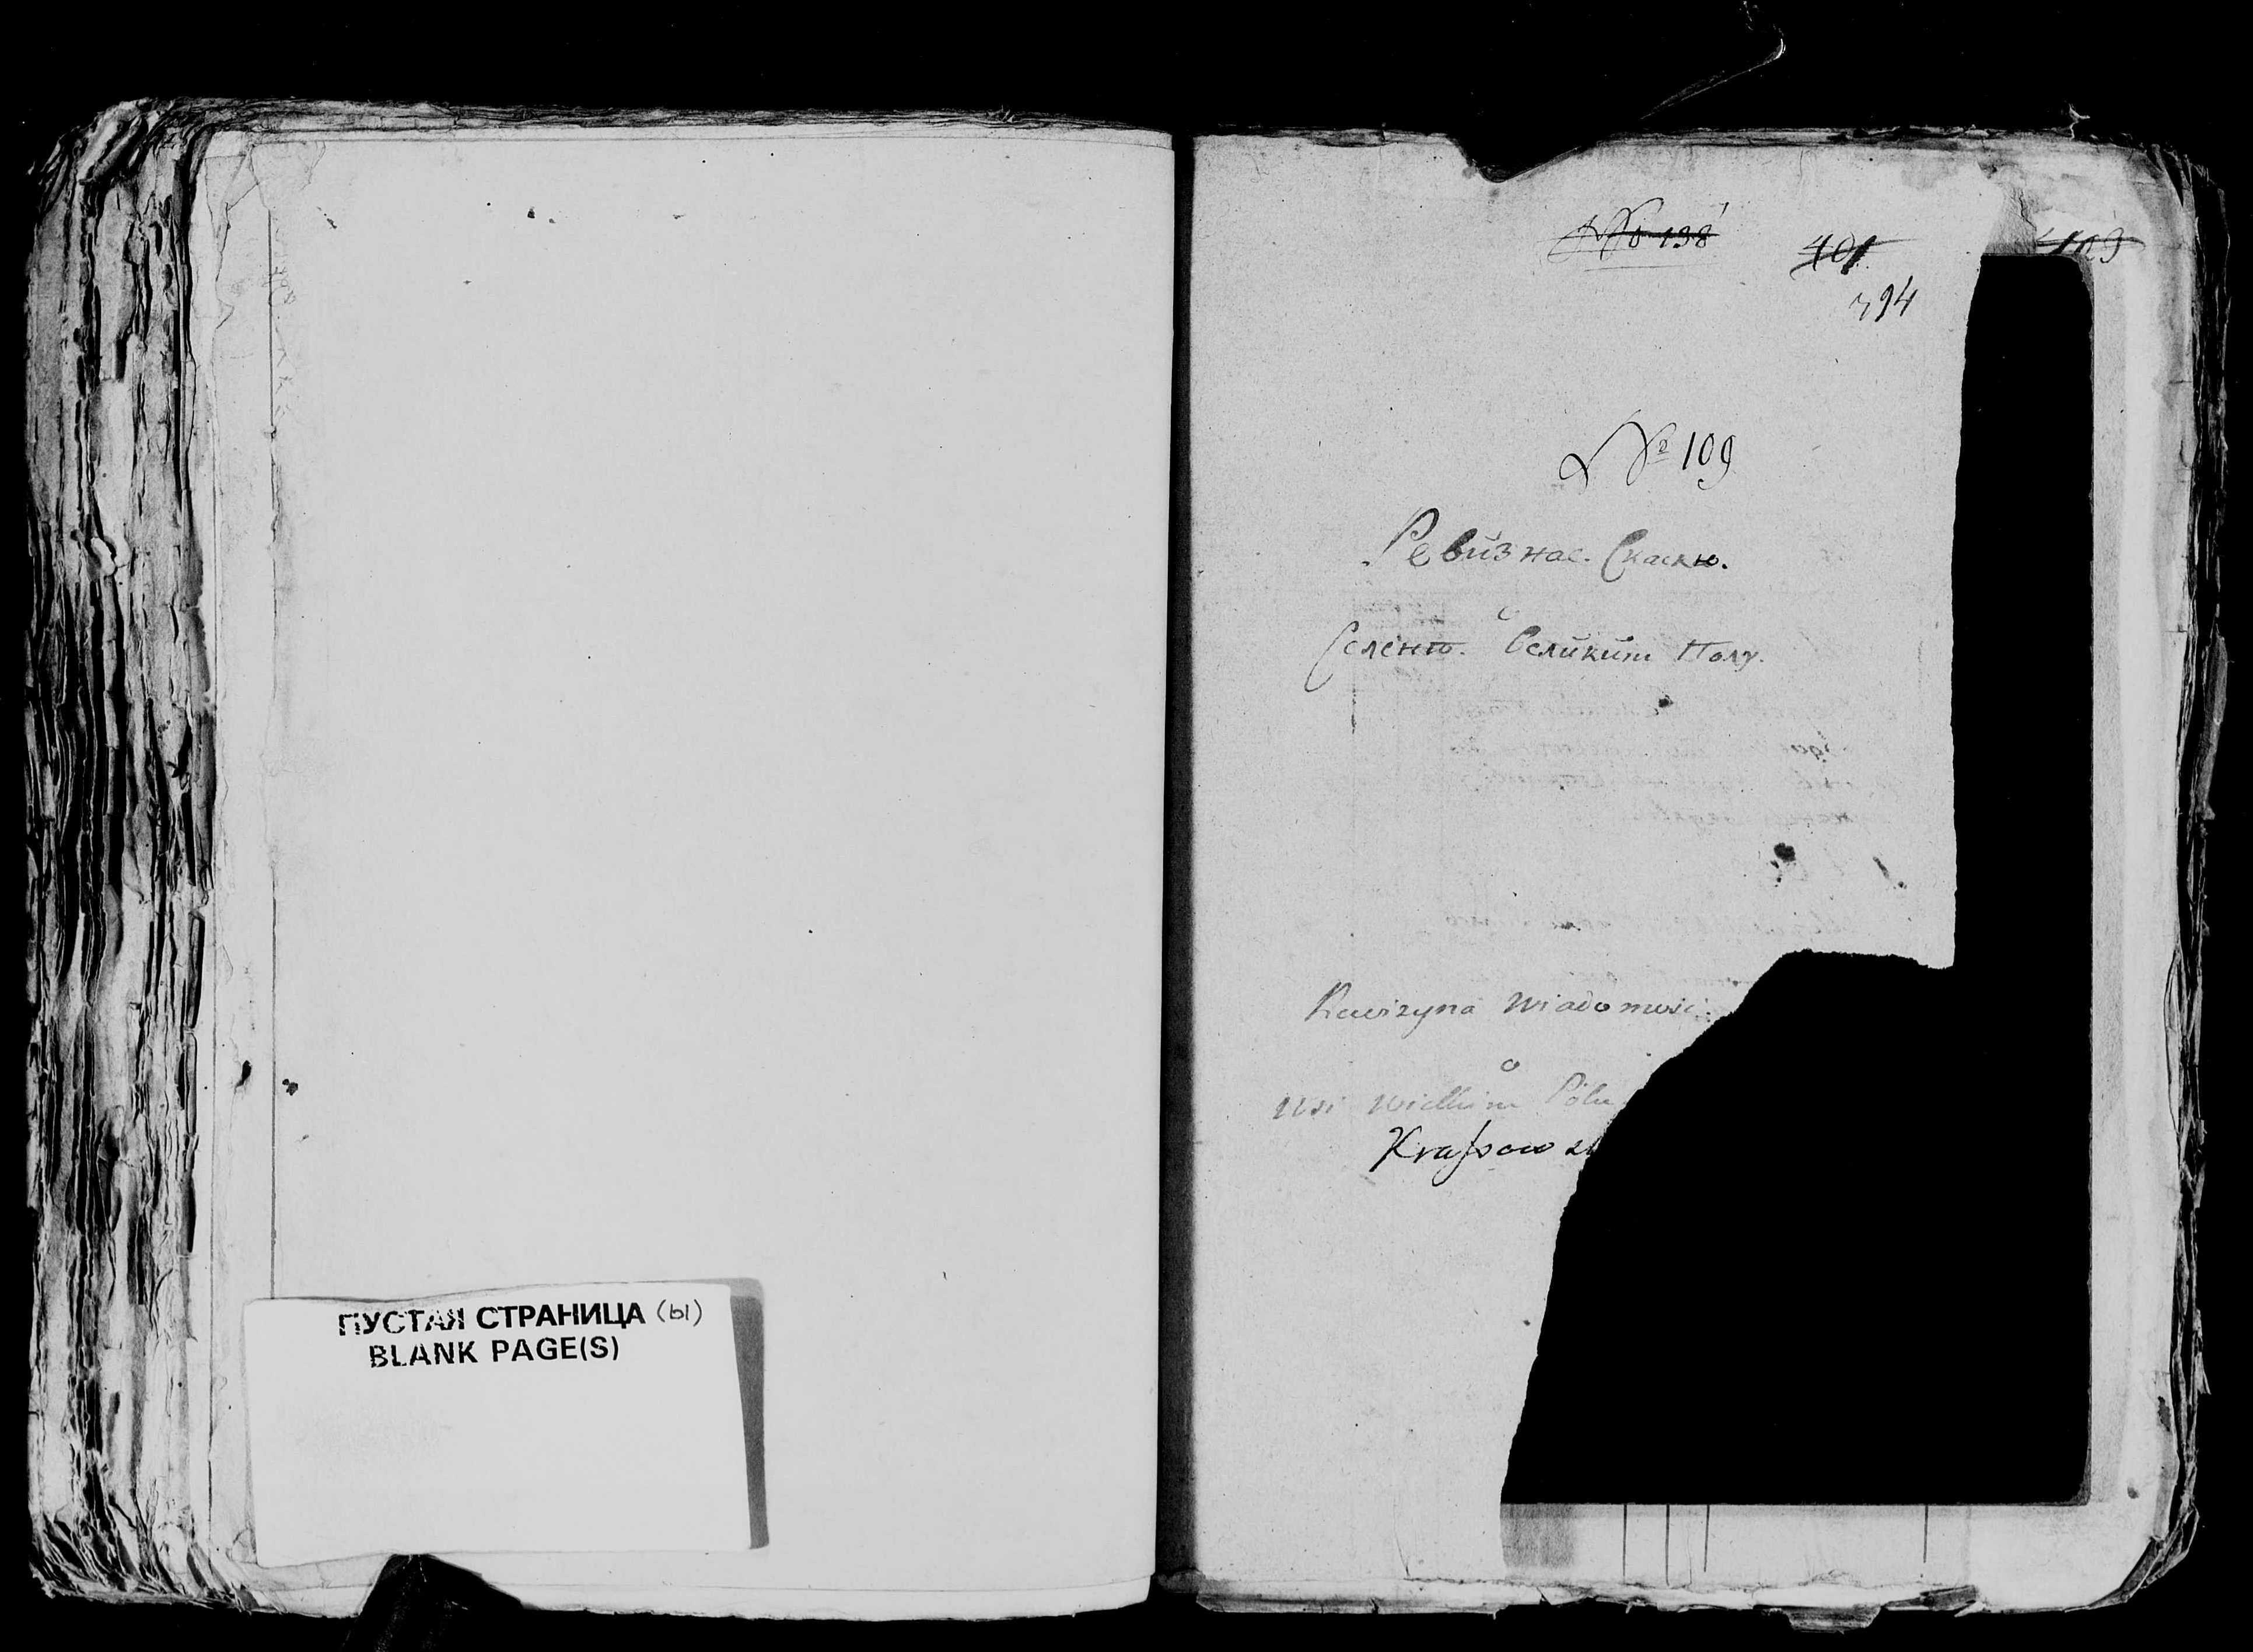 ПУСТАЯ СТРАНИЦА (ы)
BLANK PAGE(S)
№ 138
401
394
109
№ 109
Ревизнас. Скаскю.
о
Селеню. Великим Полу.
Rewizyna Wiadomosci
o
Wsi Wielkim Polu
Krassow